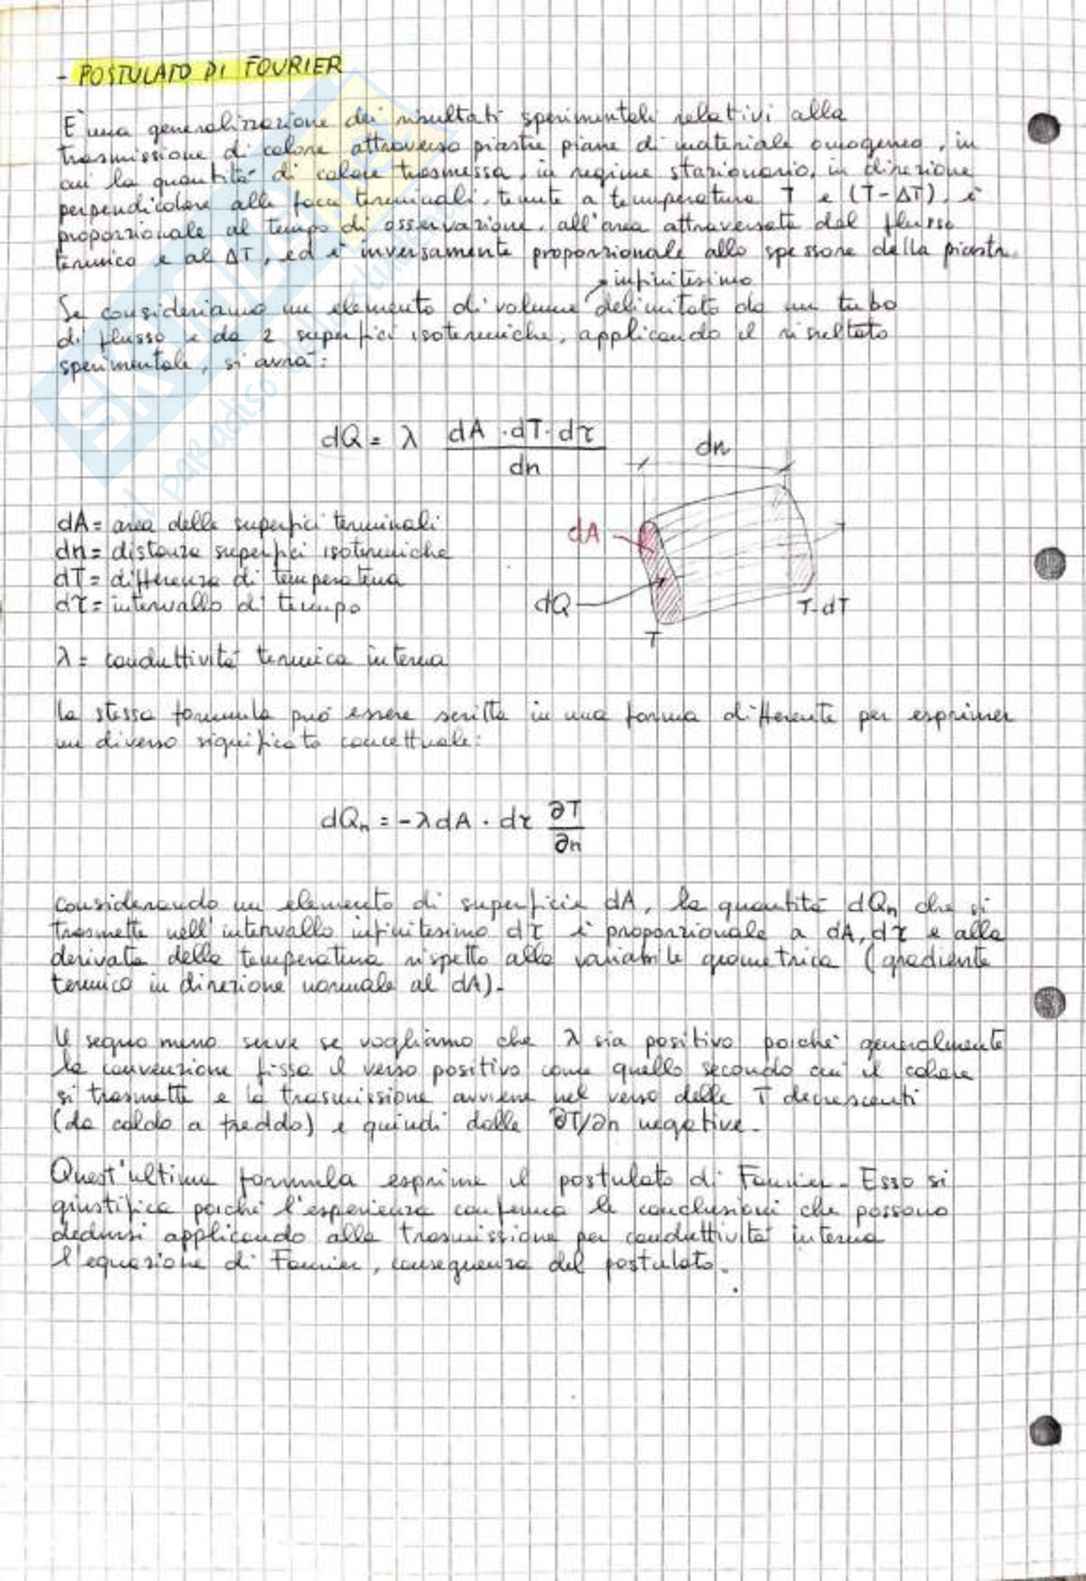 - POSTULATO DI FOURIER
È una generalizzazione dei risultati sperimentali relativi alla
trasmissione di calore attraverso piastre piane di materiale omogeneo, in
cui la quantità di calore trasmessa, in regime stazionario, in direzione
perpendicolare alle facce terminali, tenute a temperatura T e (T-ΔT), è
proporzionale al tempo di osservazione, all'area attraversata dal flusso
termico e al ΔT, ed è inversamente proporzionale allo spessore della piastra.
infinitesimo
Se consideriamo un elemento di volume delimitato da un tubo
di flusso e da 2 superfici isotermiche, applicando il risultato
sperimentale, si avrà:
dQ = λ dA · dT · dτ / dn
dn
dA = area delle superfici terminali
dn = distanza superfici isotermiche
dT = differenza di temperatura
dτ = intervallo di tempo
dA
dQ
T
T-dT
λ = conduttività termica interna
La stessa formula può essere scritta in una forma differente per esprimere
un diverso significato concettuale:
dQn = -λ dA · dτ ∂T/∂n
Considerando un elemento di superficie dA, la quantità dQn che si
trasmette nell'intervallo infinitesimo dτ è proporzionale a dA, dτ e alla
derivata della temperatura rispetto alla variabile geometrica (gradiente
termico in direzione normale al dA).
Il segno meno serve se vogliamo che λ sia positivo poiché generalmente
la convenzione fissa il verso positivo come quello secondo cui il calore
si trasmette e la trasmissione avviene nel verso delle T decrescenti
(da caldo a freddo) e quindi dalle ∂T/∂n negative.
Quest'ultima formula esprime il postulato di Fourier. Esso si
giustifica poiché l'esperienza conferma le conclusioni che possono
dedursi applicando alla trasmissione per conduttività interna
l'equazione di Fourier, conseguenza del postulato.